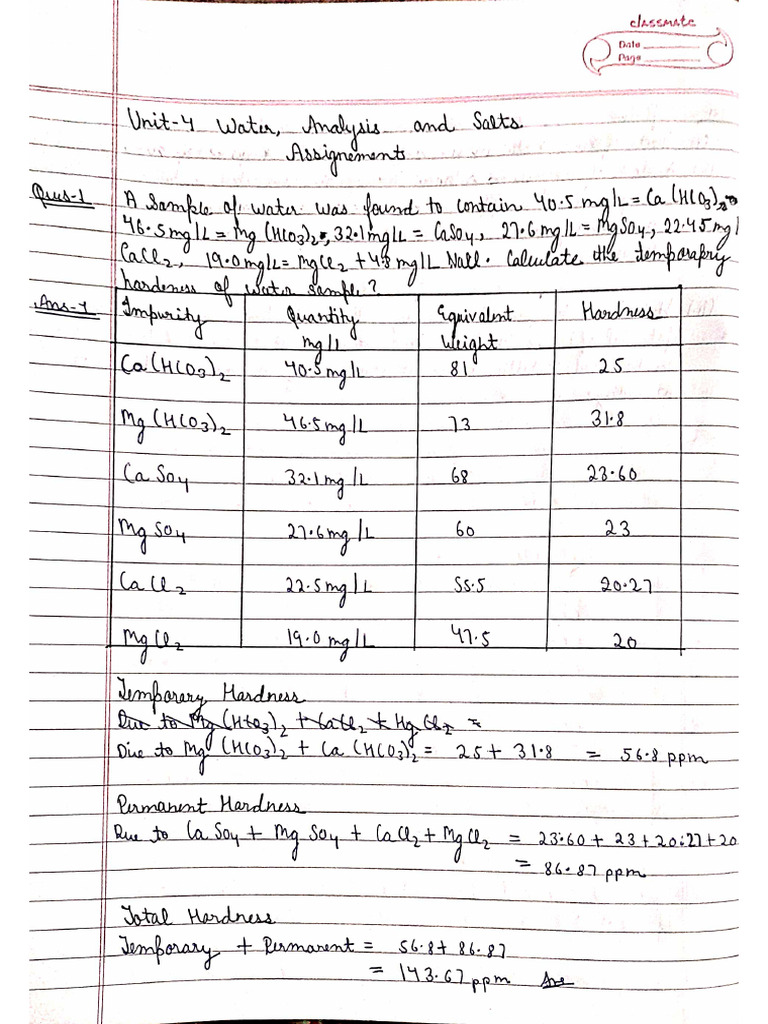 classmate
Date
Page
Unit-4 Water, Analysis and Salts
Assignement
Ques-1 A sample of water was found to contain 40.5 mg/L = Ca(HCO3)2
46.5mg/L = Mg(HCO3)2, 32.1mg/L = CaSO4, 27.6 mg/L = MgSO4, 22.45 mg/
CaCl2, 19.0 mg/L = MgCl2 + 4.3 mg/L NaCl. Calculate the temporapry
hardeness of water sample?
Ans-1 Impurity Quantity mg/l Equivalent Weight Hardness
Ca(HCO3)2 40.5mg/L 81 25
Mg(HCO3)2 46.5mg/L 73 31.8
CaSO4 32.1mg/L 68 23.60
MgSO4 27.6mg/L 60 23
CaCl2 22.5mg/L 55.5 20.27
MgCl2 19.0 mg/L 47.5 20
Temporary Hardness
Due to Mg(HCO3)2 + CaCl2 + MgCl2 =
Due to Mg(HCO3)2 + Ca(HCO3)2 = 25 + 31.8 = 56.8 ppm
Permanent Hardness
Due to CaSO4 + MgSO4 + CaCl2 + MgCl2 = 23.60 + 23 + 20.27 + 20
= 86.87 ppm
Total Hardness
Temporary + Permanent = 56.8 + 86.87
= 143.67 ppm Ans